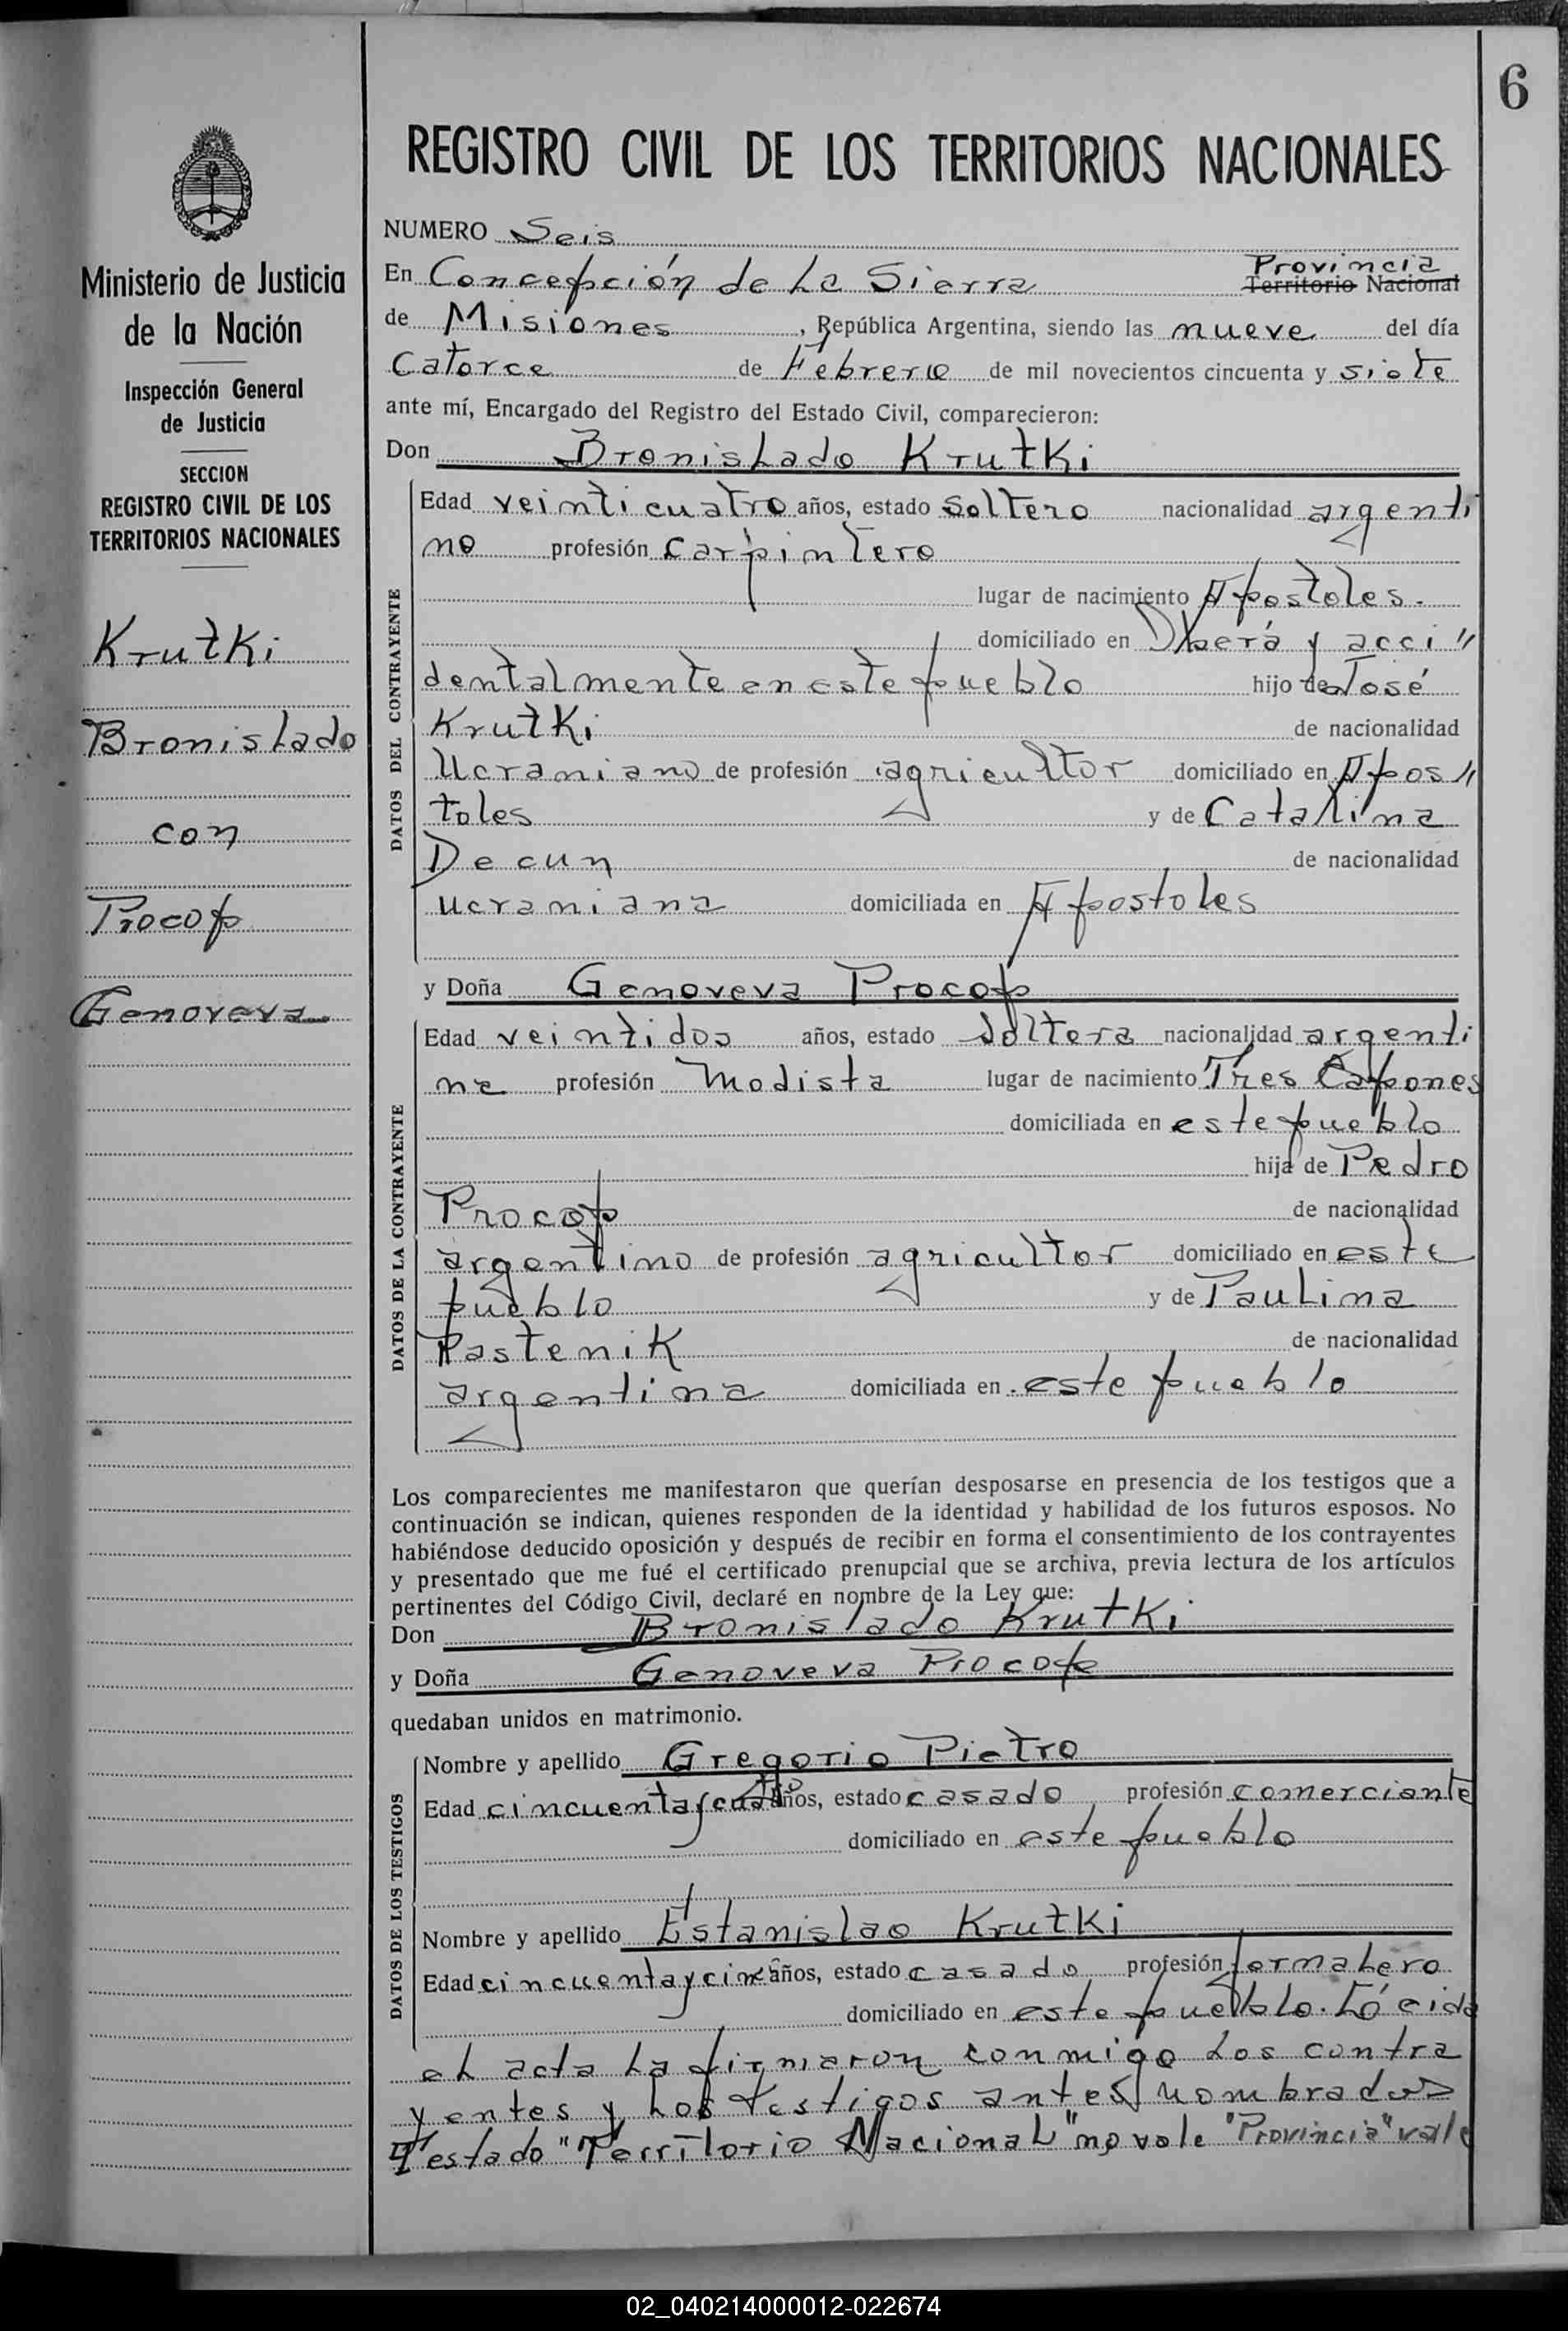 6
REGISTRO CIVIL DE LOS TERRITORIOS NACIONALES
Ministerio de Justicia
de la Nación
Inspección General
de Justicia
SECCION
REGISTRO CIVIL DE LOS
TERRITORIOS NACIONALES
Krutki
Bronislado
con
Procop
Genoveva
NUMERO Seis
Provincia
En Concepción de La Sierra Territorio Nacional
de Misiones, República Argentina, siendo las nueve del día
Catorce de Febrero de mil novecientos cincuenta y siete
ante mí, Encargado del Registro del Estado Civil, comparecieron:
Don Bronislado Krutki
DATOS DEL CONTRAYENTE
Edad veinticuatro años, estado Soltero nacionalidad argenti
no profesión Carpintero
lugar de nacimiento Apostoles.
domiciliado en y acci"
dentalmente en este pueblo hijo de José
Krutki de nacionalidad
Ucraniano de profesión agricultor domiciliado en Apos"
toles y de Catalina
Decun de nacionalidad
ucraniana domiciliada en Apostoles
y Doña Genoveva Procop
DATOS DE LA CONTRAYENTE
Edad veintidos años, estado Soltera nacionalidad argenti
na profesión Modista lugar de nacimiento Tres Capones
domiciliada en este pueblo
hija de Pedro
Procop de nacionalidad
argentino de profesión agricultor domiciliado en este
pueblo y de Paulina
Pastenik de nacionalidad
argentina domiciliada en este pueblo
Los comparecientes me manifestaron que querían desposarse en presencia de los testigos que a
continuación se indican, quienes responden de la identidad y habilidad de los futuros esposos. No
habiéndose deducido oposición y después de recibir en forma el consentimiento de los contrayentes
y presentado que me fué el certificado prenupcial que se archiva, previa lectura de los artículos
pertinentes del Código Civil, declaré en nombre de la Ley que:
Don Bronislado Krutki
y Doña Genoveva Procop
quedaban unidos en matrimonio.
DATOS DE LOS TESTIGOS
Nombre y apellido Gregorio Pietro
Edad cincuentaycuatro años, estado casado profesión comerciante
domiciliado en este pueblo
Nombre y apellido Estanislao Krutki
Edad cincuentaycinc años, estado casado profesión jornalero
domiciliado en este pueblo. Lécida
el acta la firmaron conmigo los contra
yentes y los testigos antes nombrados
Testado "Territorio Nacional" no vale "Provincia" vale
02_040214000012-022674